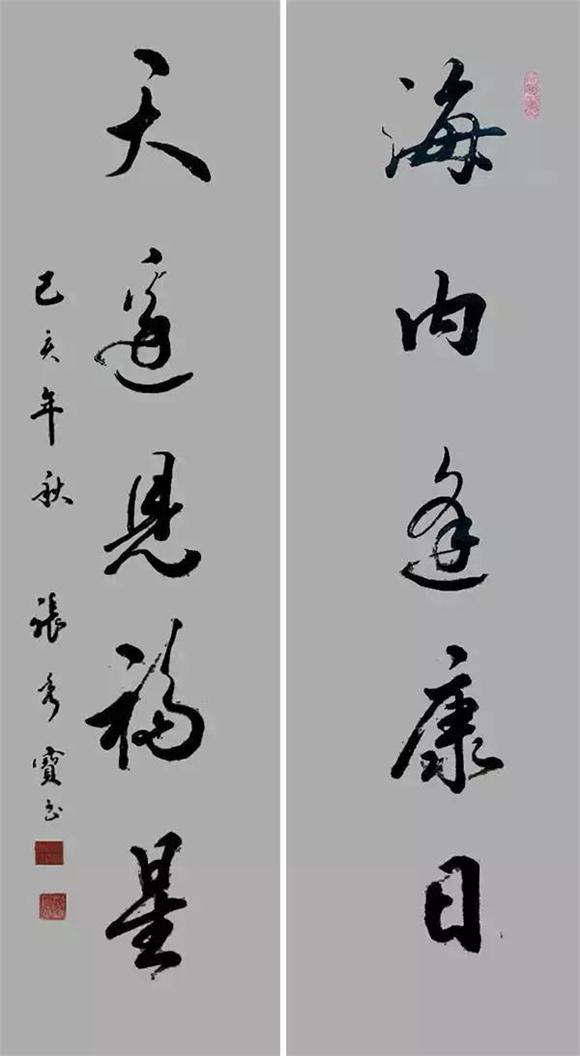 海内逢康日
天邊見福星
己亥年秋 張秀寶書